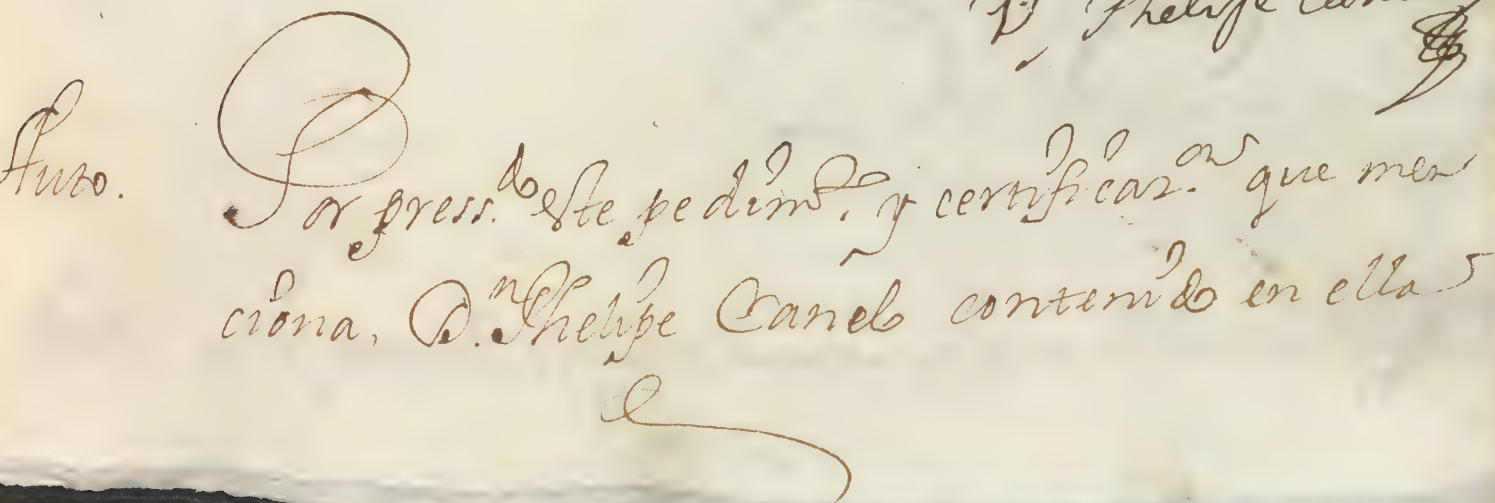 D Phelipe
Auto.
Por press.do este pedim.to y certificaz.on que men
ciona, D.n Phelipe Canelo contenido en ella